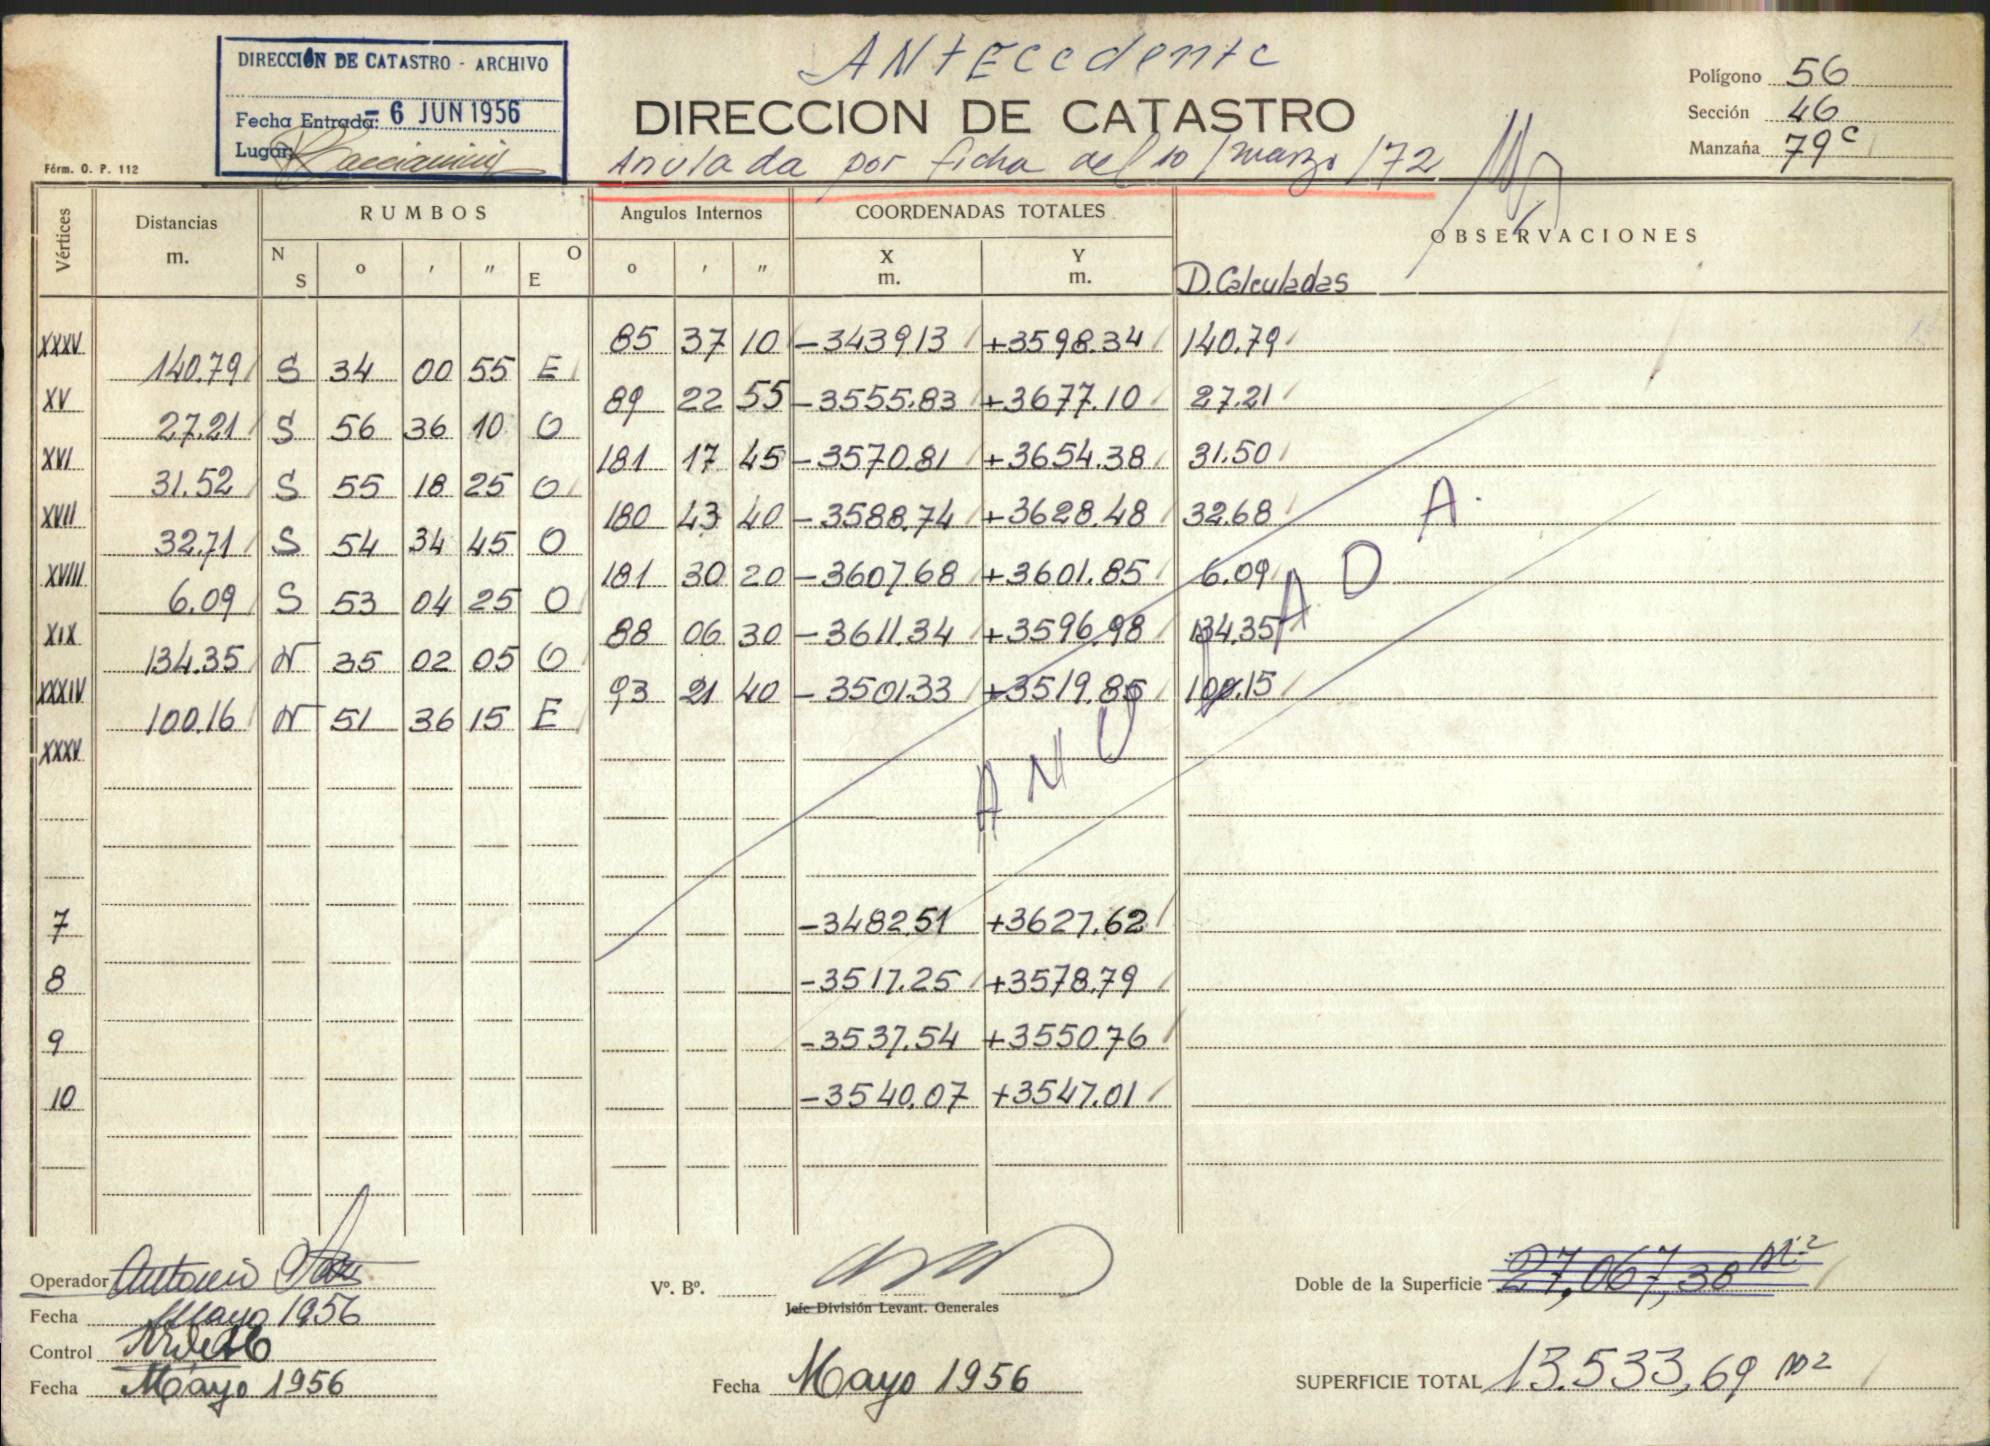 ANtEcedente
DIRECCIÓN DE CATASTRO - ARCHIVO
Fecha Entrada: - 6 JUN 1956
Lugar:
Fórm. O. P. 112
DIRECCION DE CATASTRO
Anulada por ficha del 10/marzo/72
Polígono 56
Sección 46
Manzana 79c
Vértices Distancias m. RUMBOS N S ° ' " O E Angulos Internos ° ' " COORDENADAS TOTALES X m. Y m. OBSERVACIONES
D. Calculadas
XXXV 85 37 10 -3439.13 +3598.34 140.79
140.79 S 34 00 55 E
XV 89 22 55 -3555.83 +3677.10 27.21
27.21 S 56 36 10 O
XVI 181 17 45 -3570.81 +3654.38 31.50
31.52 S 55 18 25 O
XVII 180 43 40 -3588.74 +3628.48 32.68
32.71 S 54 34 45 O
XVIII 181 30 20 -3607.68 +3601.85 6.09
6.09 S 53 04 25 O
XIX 88 06 30 -3611.34 +3596.98 134.35
134.35 N 35 02 05 O
XXXIV 93 21 40 -3501.33 +3519.85 100.15
100.16 N 51 36 15 E
XXXV
ANULADA.
7 -3482.51 +3627.62
8 -3517.25 +3578.79
9 -3537.54 +3550.76
10 -3540.07 +3547.01
Operador Antonio
Fecha Mayo 1956
Control
Fecha Mayo 1956
Vº. Bº.
Jefe División Levant. Generales
Fecha Mayo 1956
Doble de la Superficie 27,067,38 M.²
SUPERFICIE TOTAL 13.533,69 m²